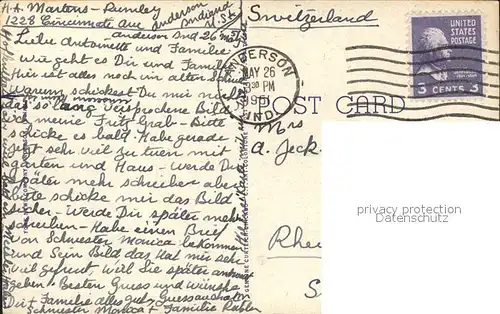 H.A. Martens-Rumley
1228 Cincinnati Ave Anderson
Indiana
U.S.A.
Switzerland
Anderson Ind 26 May 51
Liebe Antoinette und Familie
wie geht es Dir und Familie
Hir ist alles noch im alten
Warum schickest Du mir nicht
das so lang versprochene Bild
meine Fritz Grab - Bitte
schicke es bald. Habe gerade
sehr viel zu tuen mit
garten und Haus - Werde Dir
später mehr schreiben aber
bitte schicke mir das Bild
sicher - Werde Dir später mehr
schreiben - Habe einen Brief
von Schwester Monica bekommen
und Sein Bild das Hat mir sehr
viel gefreut Will Sie später antwort
geben. Besten Gruss und wünsche
Dir + Familie alles gute
Schwester Monica + Familie
ANDERSON
MAY 26
3 30 PM
1951
IND.
UNITED
STATES
POSTAGE
3 CENTS 3
POST CARD
Mrs
A. Jeck
Rhe
S
privacy protection